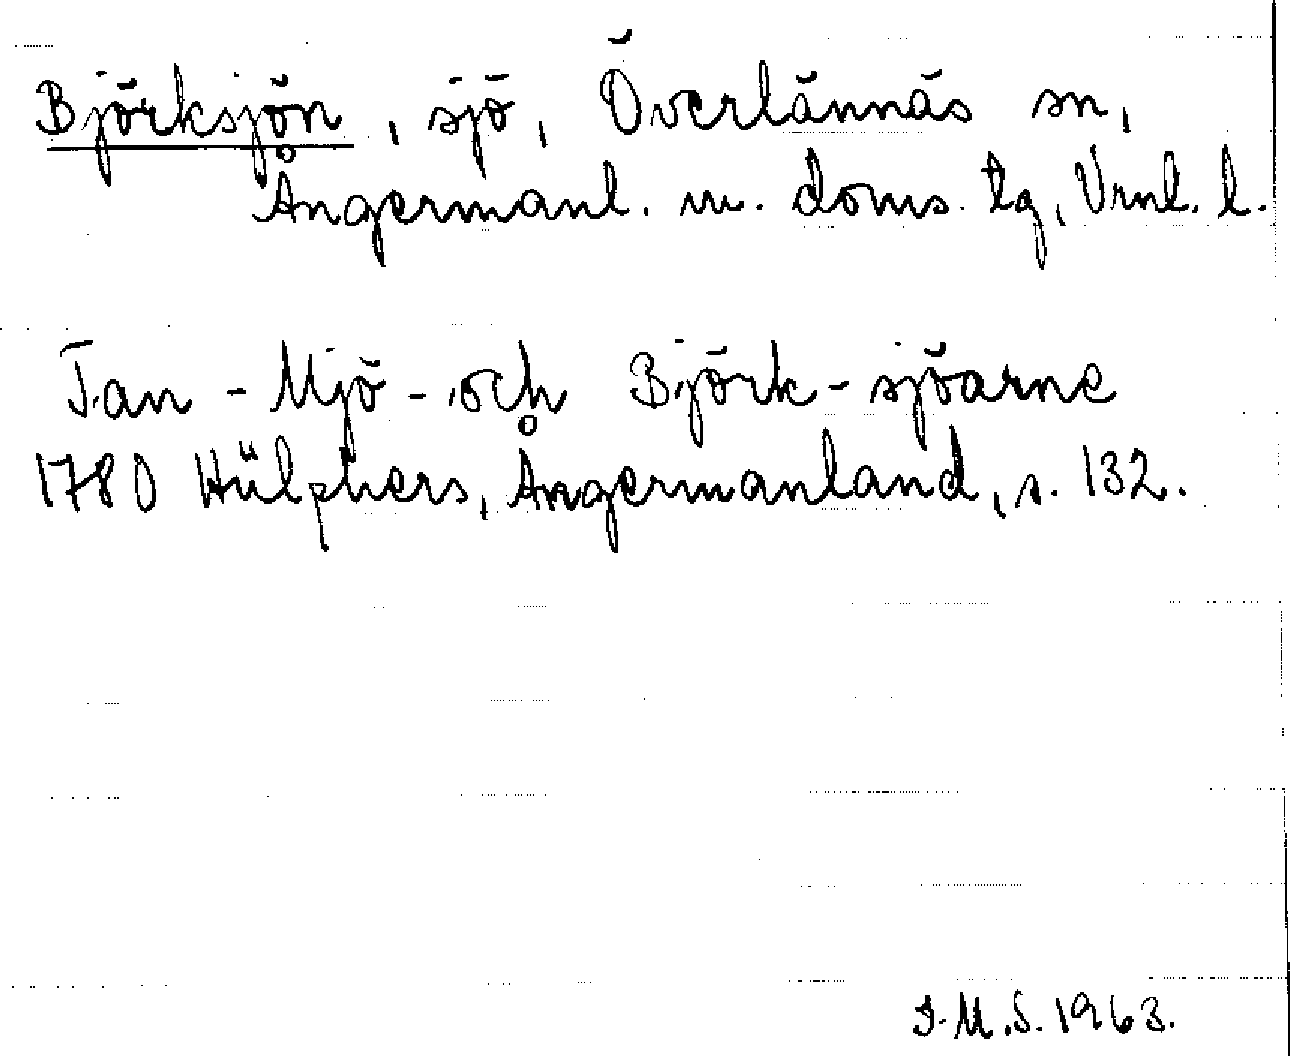 Björksjön, sjö, Överlännäs sn,
Ångermanl. m. doms. tg, Vrnl. l.
Tan - Mjö - och Björk - sjöarne
1780 Hülphers, Ångermanland, s. 132.
I.M.S. 1963.